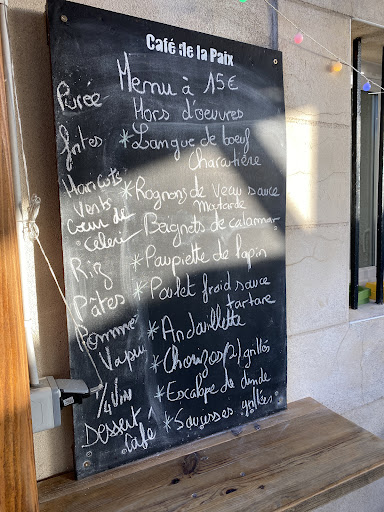 Café de la Paix
Menu à 15€
Hors d'oeuvres
*Langue de boeuf
Charcutière
*Rognons de veau sauce
moutarde
*Bagnets de calamar
*Paupiette de lapin
*Poulet froid sauce
tartare
*Andouillette
*Chorizos(2) grillés
*Escalope de dinde
*Saucisses grillées
Purée
frites
Haricots
verts
Coeur de
celeri
Riz
Pâtes
Pomme
Vapeur
1/4 Vin
Dessert
Café